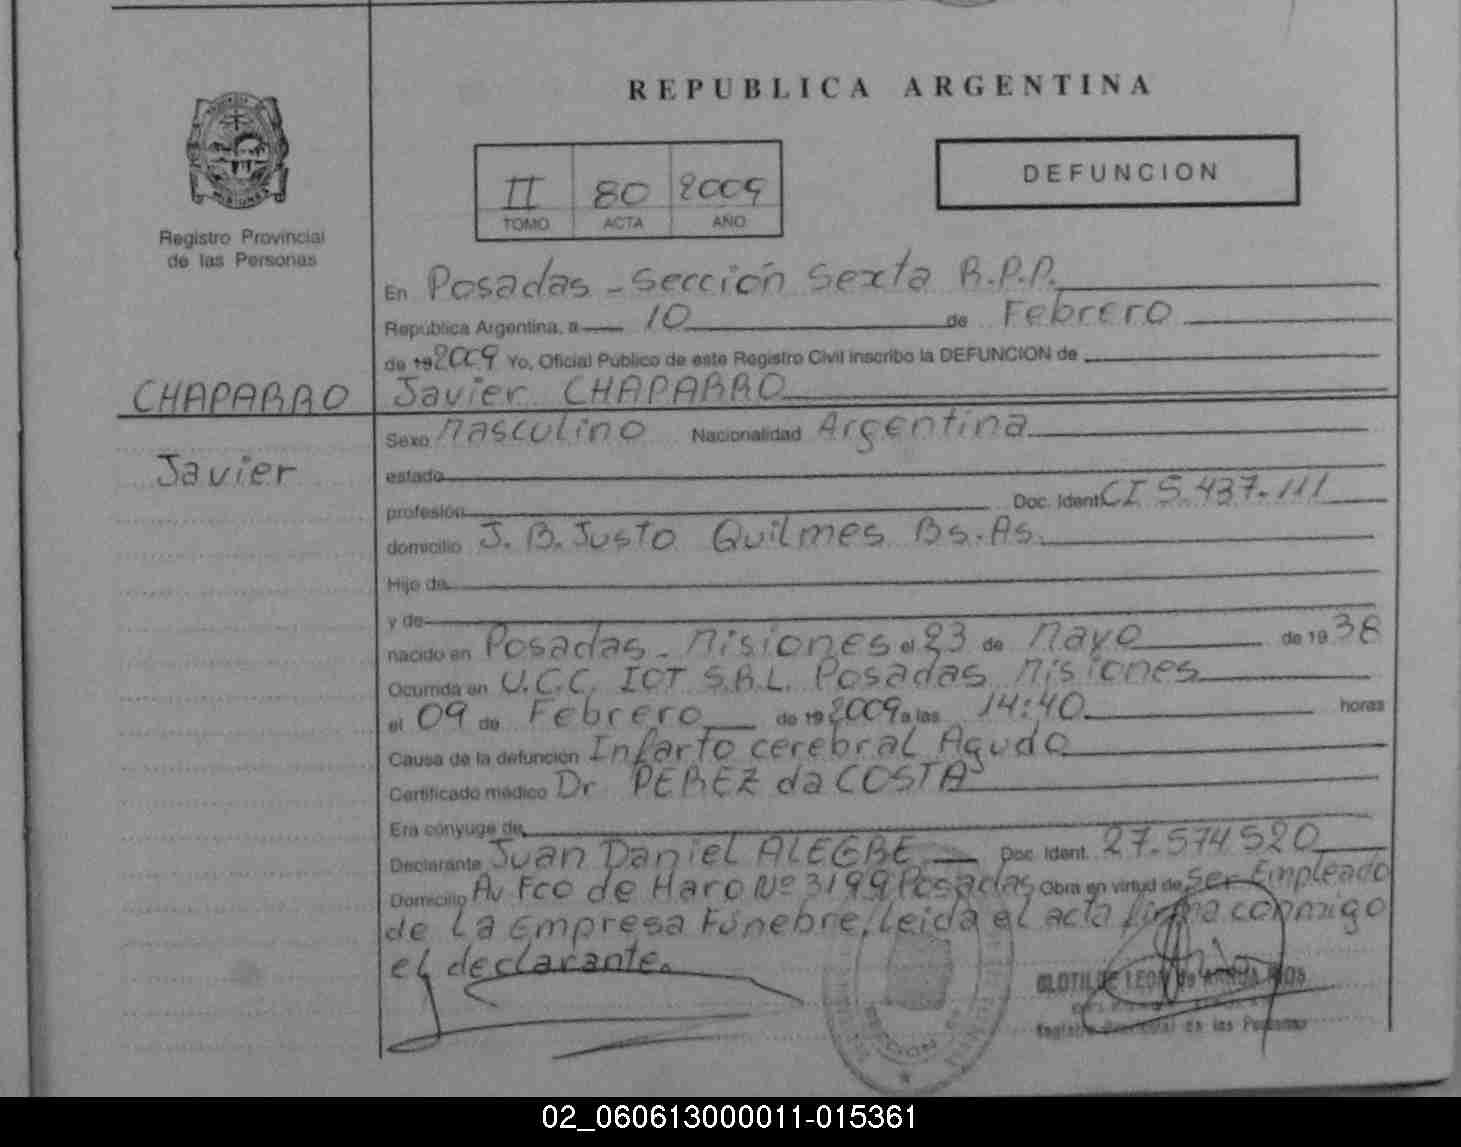 REPUBLICA ARGENTINA
DEFUNCION
II 80 2009
TOMO ACTA AÑO
Registro Provincial
de las Personas
En Posadas - Sección Sexta R.P.P.
República Argentina, a 10 de Febrero
de 19 2009 Yo, Oficial Público de este Registro Civil inscribo la DEFUNCION de
CHAPARRO Javier CHAPARRO
Sexo Masculino Nacionalidad Argentina
Javier
estado
profesión Doc. Ident. CI 5.437.111
domicilio J. B. Justo Quilmes Bs. As.
Hijo de
y de
nacido en Posadas - Misiones el 23 de Mayo de 19 38
Ocurrida en U.C.C. IOT S.R.L. Posadas Misiones
el 09 de Febrero de 19 2009 a las 14:40 horas
Causa de la defunción Infarto cerebral Agudo
Certificado médico Dr PEREZ da COSTA
Era cónyuge de
Declarante Juan Daniel ALEGRE Doc. Ident. 27.574.520
Domicilio Av Fco de Haro Nº 3199 Posadas Obra en virtud de Ser Empleado
de La Empresa Fúnebre, Leida el acta firma conmigo
el declarante.
CLOTILDE LEON de ARRUA RIOS
Registro Provincial de las Personas
02_060613000011-015361